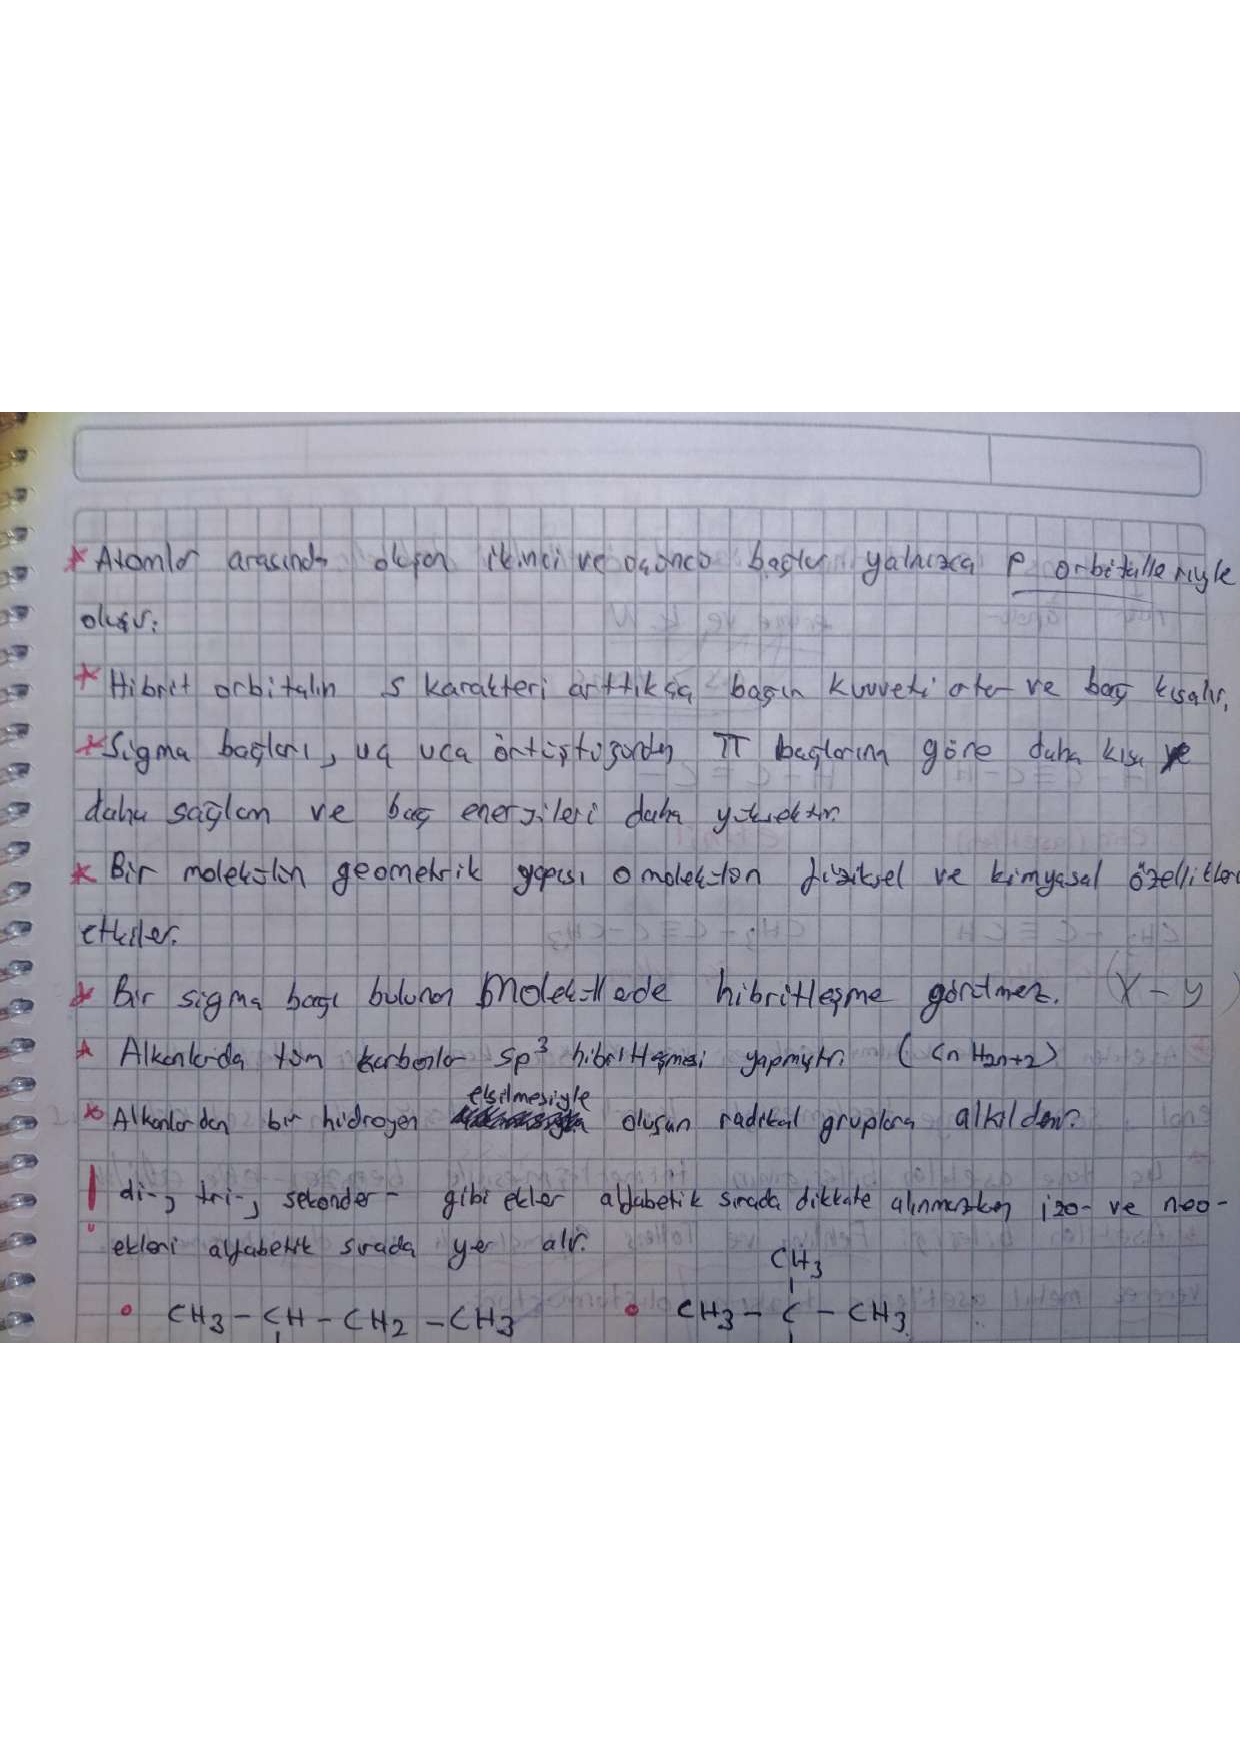 * Atomlar arasında oluşan ikinci ve üçüncü bağlar yalnızca P orbitalleriyle
oluşur.
* Hibrit orbitalin s karakteri arttıkça bağın kuvveti artar ve bağ kısalır.
* Sigma bağları, uç uca örtüştüğünden π bağlarına göre daha kısa ve
daha sağlam ve bağ enerjileri daha yüksektir.
* Bir molekülün geometrik yapısı o molekülün fiziksel ve kimyasal özellikleri
etkiler.
* Bir sigma bağı bulunan Moleküllerde hibritleşme görülmez. (X - y)
* Alkanlarda tüm karbonlar sp³ hibritleşmesi yapmıştır. (CnH2n+2)
eksilmesiyle
* Alkanlardan bir hidrojen oluşan radikal gruplara alkil denir.
! di-, tri-, sekonder- gibi ekler alfabetik sırada dikkate alınmazken izo- ve neo-
ekleri alfabetik sırada yer alır.
CH3
CH3 - CH - CH2 - CH3 CH3 - C - CH3